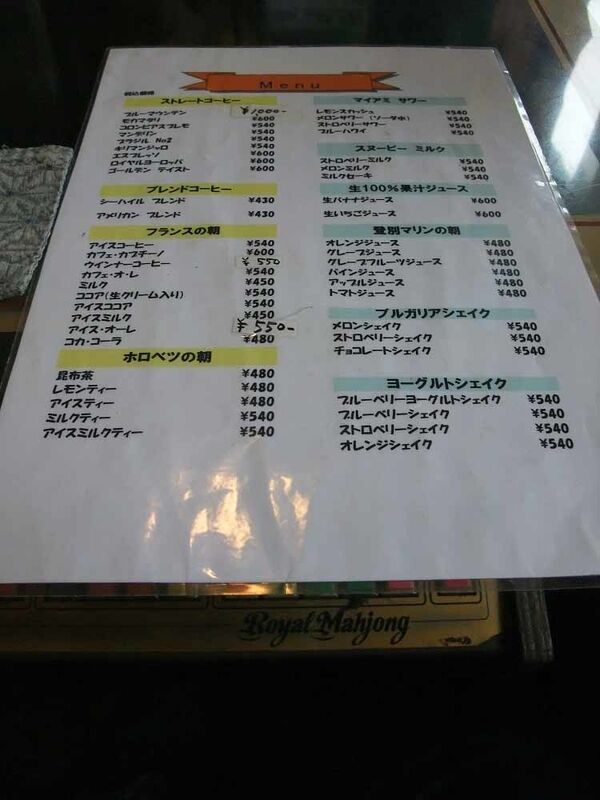 Menu
税込価格
ストレートコーヒー
ブルーマウンテン ¥1000-
モカマタリ ¥600
コロンビアスプレモ ¥540
マンデリン ¥540
ブラジル No2 ¥540
キリマンジャロ ¥540
エスプレッソ ¥600
ロイヤルヨーロッパ ¥600
ゴールデン テイスト ¥600
ブレンドコーヒー
シーハイル ブレンド ¥430
アメリカン ブレンド ¥430
フランスの朝
アイスコーヒー ¥540
カフェ・カプチーノ ¥600
ウインナーコーヒー ¥550
カフェ・オ・レ ¥540
ミルク ¥450
ココア(生クリーム入り) ¥540
アイスココア ¥540
アイスミルク ¥450
アイス・オーレ ¥550-
コカ・コーラ ¥480
ホロベツの朝
昆布茶 ¥480
レモンティー ¥480
アイスティー ¥480
ミルクティー ¥540
アイスミルクティー ¥540
マイアミ サワー
レモンスカッシュ ¥540
メロンサワー (ソーダ水) ¥540
ストロベリーサワー ¥540
ブルーハワイ ¥540
スヌーピー ミルク
ストロベリーミルク ¥540
メロンミルク ¥540
ミルクセーキ ¥540
生100%果汁ジュース
生バナナジュース ¥600
生いちごジュース ¥600
登別マリンの朝
オレンジジュース ¥480
グレープジュース ¥480
グレープフルーツジュース ¥480
パインジュース ¥480
アップルジュース ¥480
トマトジュース ¥480
ブルガリアシェイク
メロンシェイク ¥540
ストロベリーシェイク ¥540
チョコレートシェイク ¥540
ヨーグルトシェイク
ブルーベリーヨーグルトシェイク ¥540
ブルーベリーシェイク ¥540
ストロベリーシェイク ¥540
オレンジシェイク ¥540
Royal Mahjong